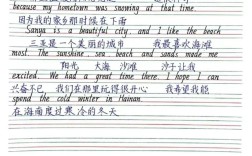 because my hometown was snowing at that time.
因为我的家乡那时候在下雨
Sanya is a beautiful city, and I like the beach
三亚是一个美丽的城市 我最喜欢海滩
most. The sunshine, sea, beach and sands made me
阳光 大海 沙滩 沙子让我
excited. We had a great time there. I hope I can
兴奋不已 我们在那里玩得很开心 我希望我能
spend the cold winter in Hainan.
在海南度过寒冷的冬天